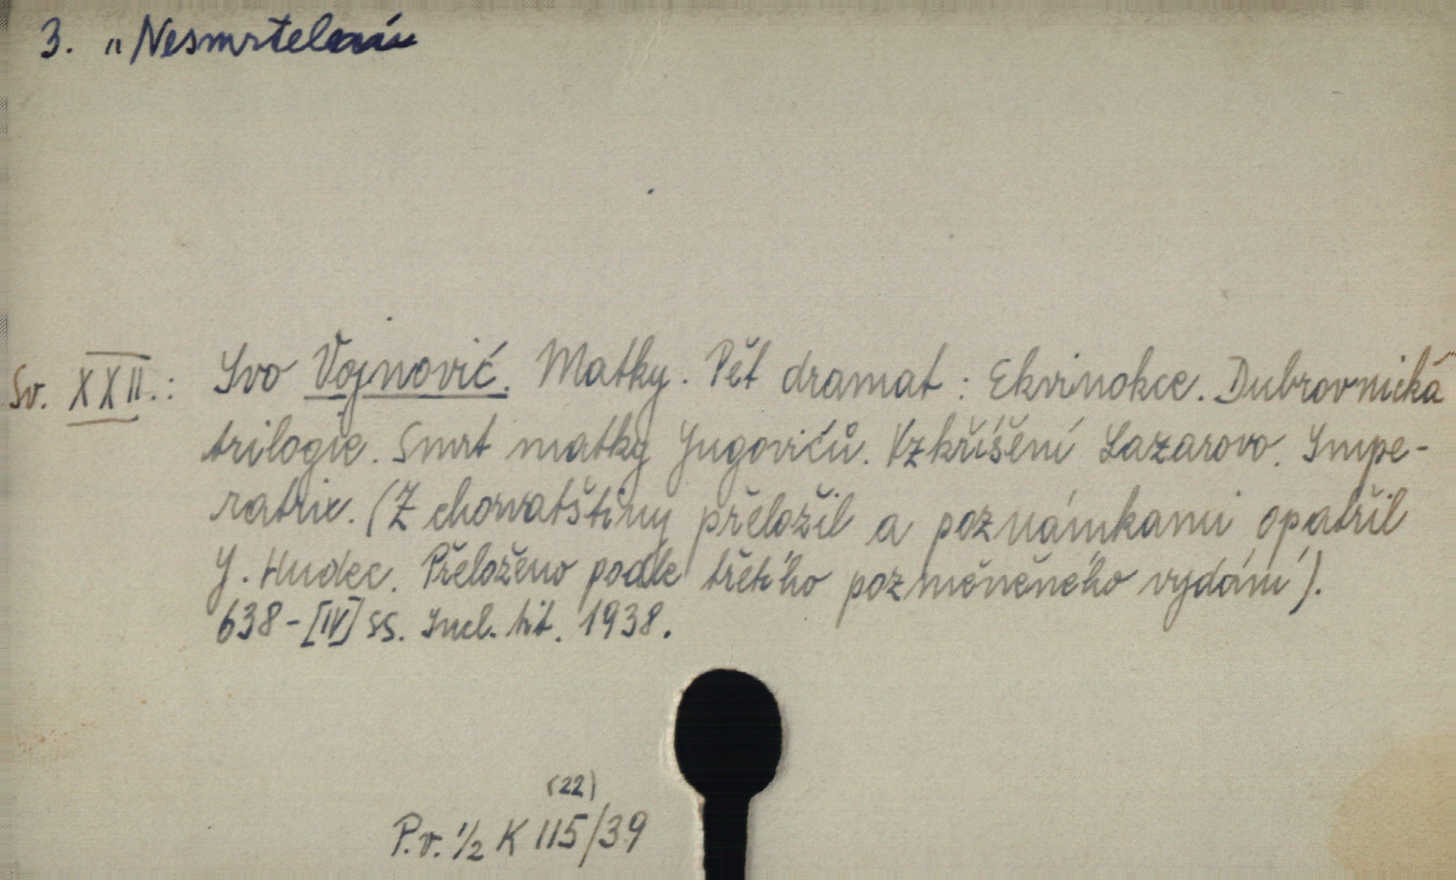 3. „Nesmrtelní"
Sv. XXII.: Ivo Vojnović. Matky. Pět dramat: Ekvinokce. Dubrovnická
trilogie. Smrt matky Jugovićů. Vzkříšení Lazarovo. Impe-
ratrix. (Z chorvatštiny přeložil a poznámkami opatřil
J. Hudec. Přeloženo podle třetího pozměněného vydání).
638-[IV] ss. Incl. tit. 1938.
(22)
P.v. 1/2 K 115/39